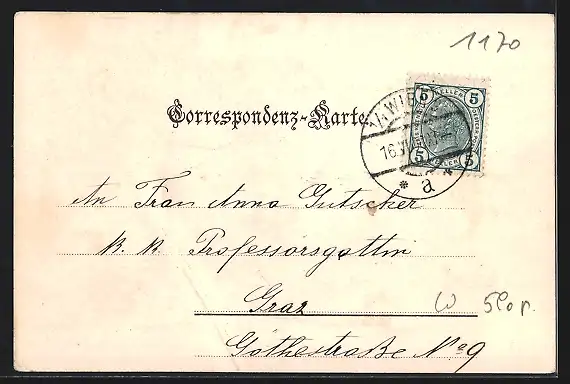 1170
Correspondenz-Karte.
1/1 WIEN
16.VI
* a *
5 HELLER 5
5 HELLER 5
An Frau Anna Gutscher
K. K. Professorsgattin
Graz
W
Göthestraße No 9